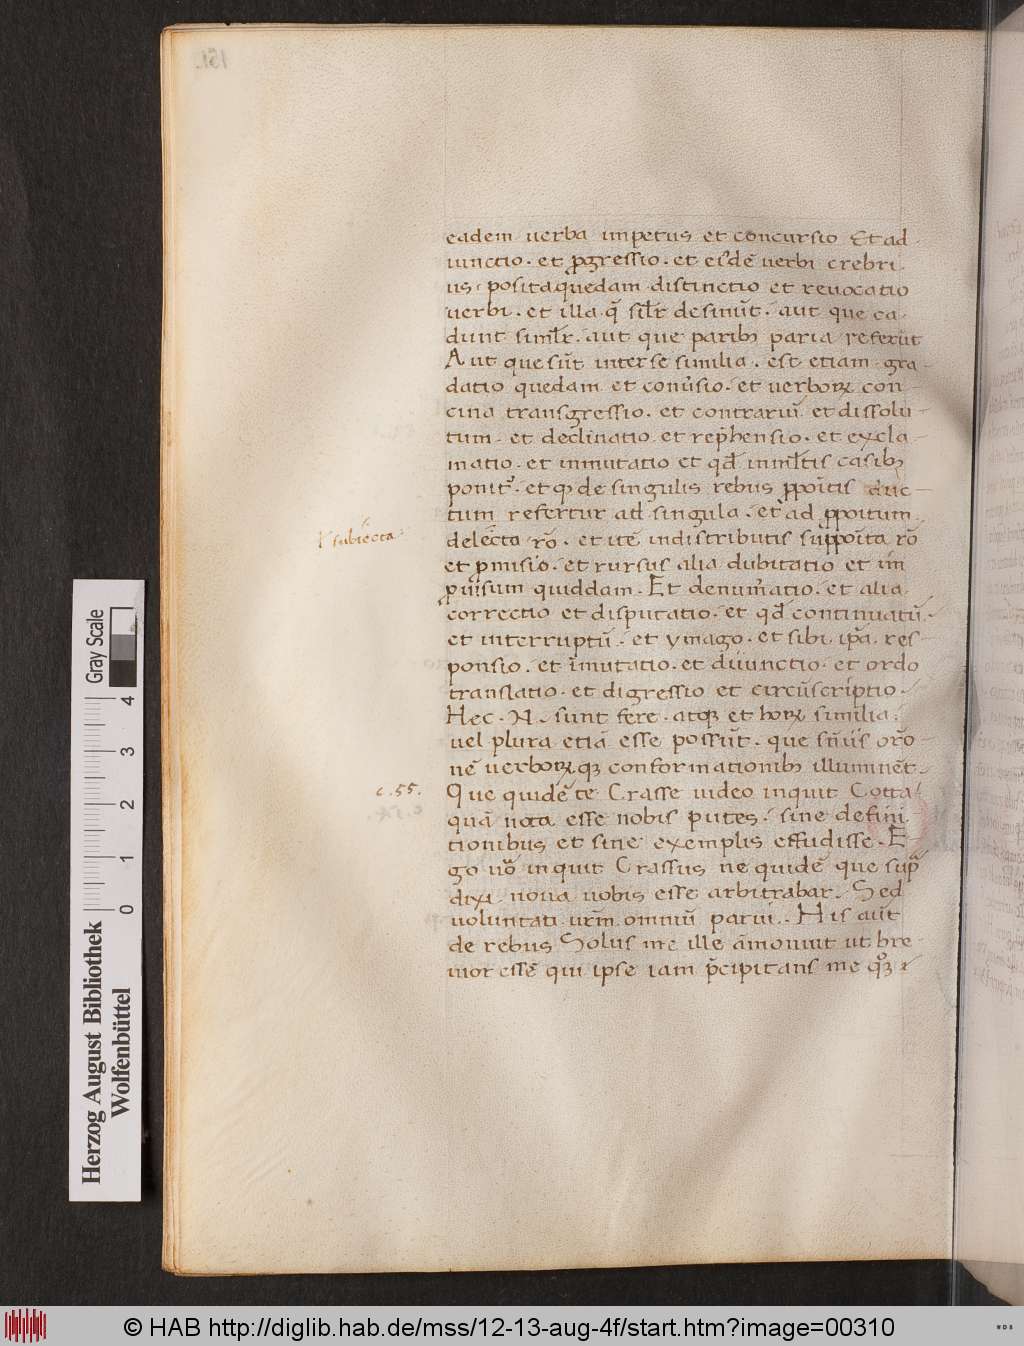 151.
eadem uerba impetus et concursio Et ad
iunctio. et ꝓgressio. et eiusdē uerbi crebri
us. posita quedam distinctio et reuocatio
uerbi. et illa q̄ silr desinūt. aut que ca
dunt similr. aut que parib; paria referūt
Aut que sūt inter se similia. est etiam gra-
datio quedam et conu̾sio. et uerboꝝ con-
cina transgressio. et contrariū et dissolu-
tum. et declinatio. et rep̄hensio. et excla-
matio. et inmutatio et qđ in mltis casib;
ponit᷑. et qđ de singulis rebus ꝓpoītis duc-
tum refertur ad singula. et ad ꝓpoitum
delecta rō. et itē indistributis suꝑpoīta rō
et ꝑmisio. et rursus alia dubitatio et im
ꝓuisum quiddam. Et denum̾atio. et alia
correctio et disputatio. et qđ continuatū.
et interruptū. et ymago. et sibi ip̄a res-
ponsio. et īmutatio. et diiunctio. et ordo
translatio. et digressio et circūscriptio.
Hec. N. sunt fere. atqꝫ et horꝝ similia.
uel plura etiā esse possūt. que sn̄iis orō-
nē uerborꝝ qꝫ conformationib; illuminēt.
Que quidē te Crasse uideo inquit Cotta
quā nota esse nobis putes. sine defini
tionibus et sine exemplis effudisse. E-
go uo̾ inquit Crassus ne quidē que sup̄
dixi. noua uobis esse arbitrabar. Sed
uoluntati urm̄ omniū parui. His aūt
de rebus Solus me ille āmonuit ut bre-
uior essē qui ipse iam p̄cipitans me qꝫ
ſ subiecta.
c. 55.
Gray Scale
4
3
2
1
0
Herzog August Bibliothek
Wolfenbüttel
© HAB http://diglib.hab.de/mss/12-13-aug-4f/start.htm?image=00310